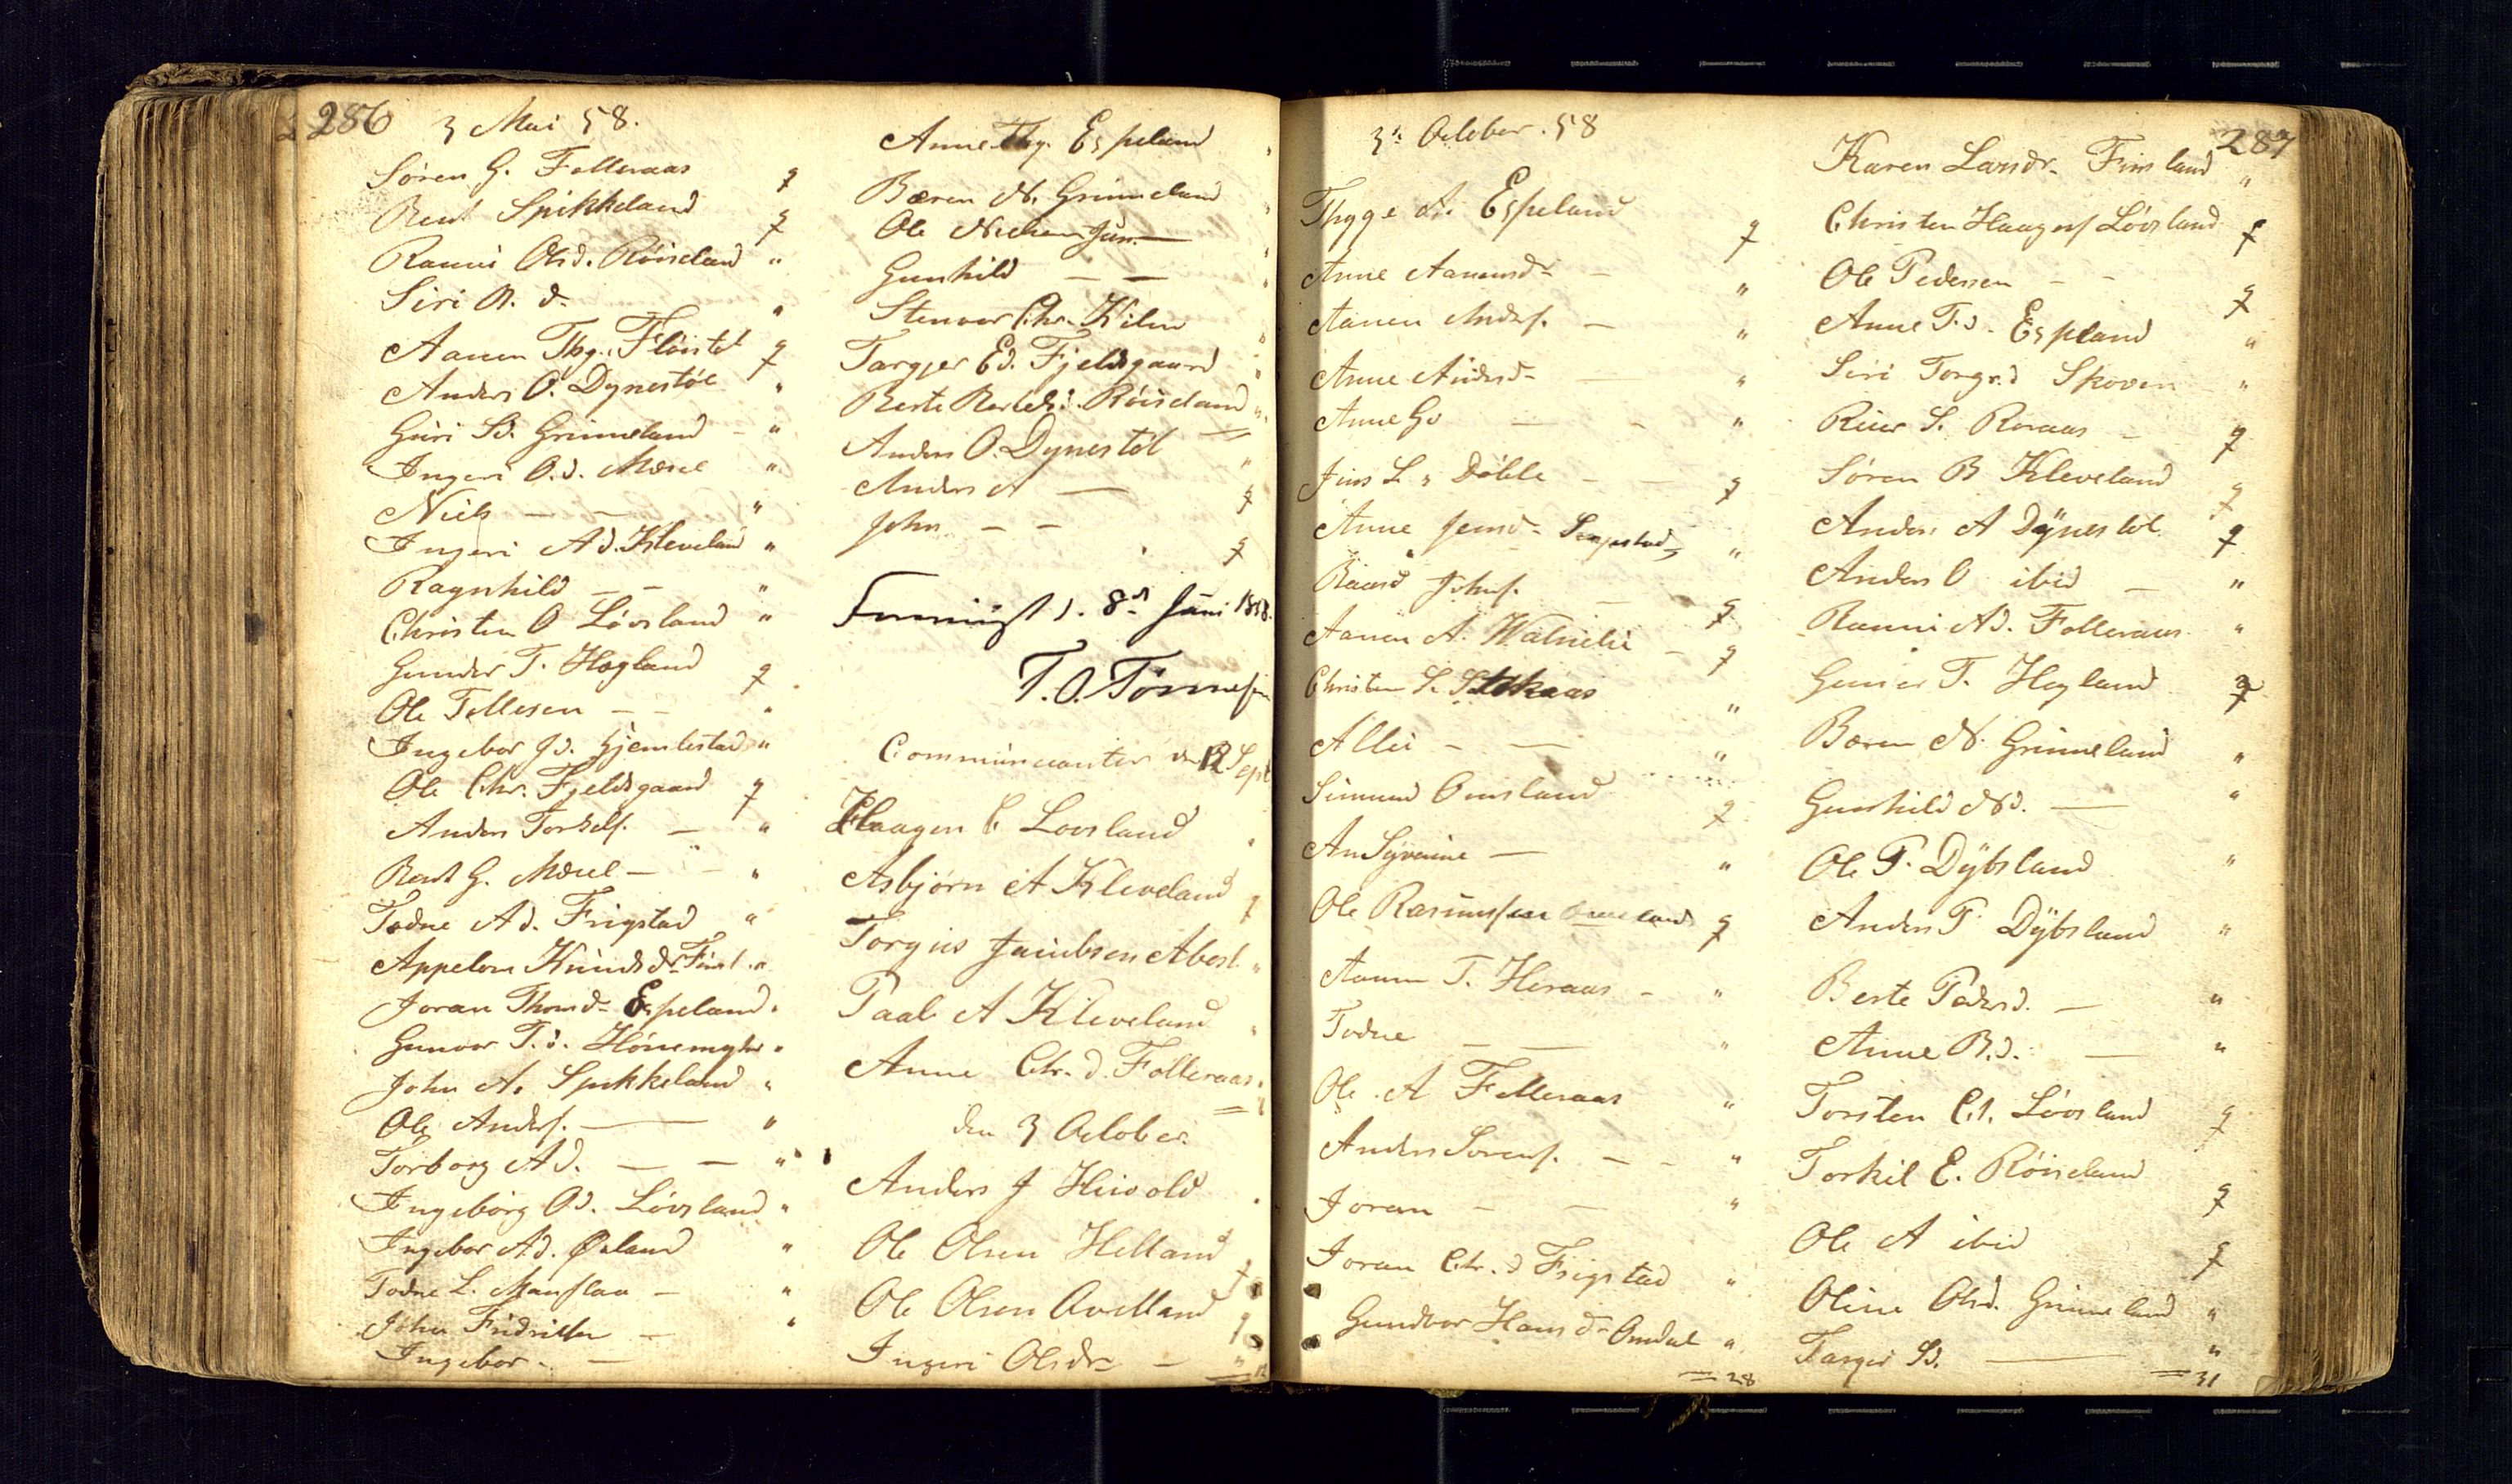 286 3 Mai 58.
Søren G. Folleraas q
Bent Spikkeland q
Ranni Olsd. Røiseland "
Siri B. d. "
Aanen Thg. Fløistøl q
Anders O. Dynestøl "
Guri Sd. Grimeland - "
Ingeri O.d. Mæsel "
Niels — — "
Ingeri Ad. Kleveland "
Ragnhild — — "
Christen O Løvsland "
Gunder T. Høgland q
Ole Tellesen — — "
Ingebor Jd. Hjemlestad "
Ole Chr. Fjeldsgaard q
Anders Torkelf. — "
Bent G. Mæsel — - "
Todne Ad. Frigstad "
Appelone Knudsdr Finsl. "
Joran Thomd- Espeland "
Gunvor T.d. Hönemyhr "
John A. Spikkeland "
Ole Andersf. — "
Torborg Ad. — — "
Ingeborg Od. Løvsland "
Ingebor Ad. Øiland "
Todne L. Mauflaa — "
John Fridriksen — "
Ingebor — "
Anne Thg. Espeland "
Bæren N. Grimeland "
Ole Nielsen Jun. — "
Gunhild — — "
Stenvor Chr. Kilen "
Targjer Ed. Fjeldsgaard "
Berte Bertels.d. Røiseland "
Anders O. Dynestøl "
Anders A — q
John — — q
d. 8de Juni 1858.
T. O. Tønnesen
Communicanter den 12 Sept
Haagen C Lovsland "
Asbjørn A Kleveland q
Torgius Jacobsen Abest. "
Paal A Kleveland "
Anne Chr. d. Folleraas "
den 3 October.
Anders J Heivold "
Ole Olsen Helland q
Ole Olsen Aveland q
Ingeri Olsdr — "
12
3die October. 58
Thyge A. Espeland q
Anne Aanensdr — "
Aanen Andersf. — "
Anne Andersd- — "
Anne Gd — - "
Jens L. Døble - - q
Anne Jensd- "
Baard Johnf. — q
Aanen A. Watnelie — q
Christen S. Stokaas "
Allei - — "
Simund Omland q
An Syverine — "
Ole Rasmussen Omeland q
Aanen T. Heraas - "
Todne — — "
Ole A Folleraas "
Anders Sorenf. — - "
Joran - — "
Joran Chr. d Frigstad "
Gundvor Hansdr Omdal "
28
287
Karen Larsdr- Finsland "
Christen Haagenf Løvsland q
Ole Pedersen — - q
Anne T.d. Espeland "
Siri Torgr.d Skoven "
Reier S. Roraas — q
Søren B Kleveland q
Anders A Dynestøl q
Anders O ibid — "
Ranni Ad. Folleraas "
Gunder T. Høgland q
Bæren N. Grimeland "
Gunhild Nd. — "
Ole P. Dybsland "
Anders P. Dybsland "
Berte Pedersd. — "
Anne B.d. — "
Torsten Ch. Løvsland q
Torkil E. Røiseland q
Ole A ibid q
Oline Olsd. Grimeland "
Targer Sd. — "
31